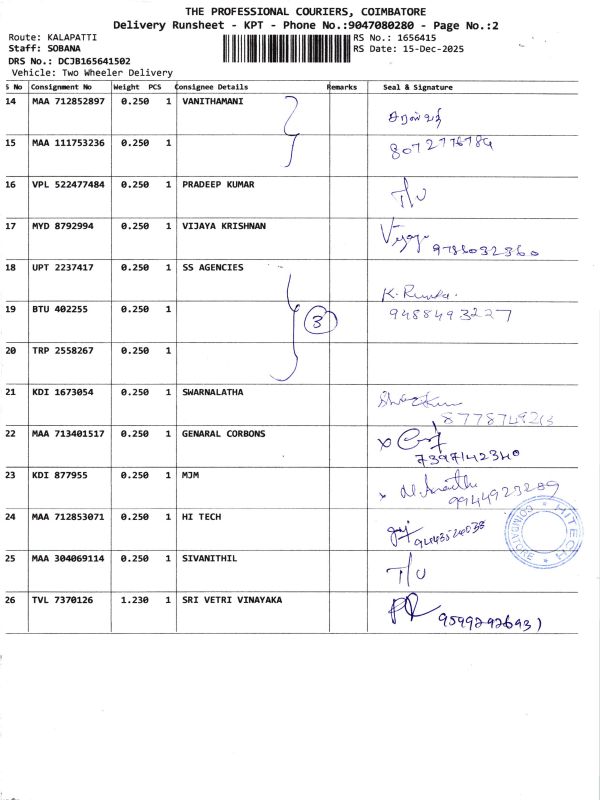 THE PROFESSIONAL COURIERS, COIMBATORE
Delivery Runsheet - KPT - Phone No.:9047080280 - Page No.:2
Route: KALAPATTI
RS No.: 1656415
Staff: SOBANA
RS Date: 15-Dec-2025
DRS No.: DCJB165641502
Vehicle: Two Wheeler Delivery
S No Consignment No Weight PCS Consignee Details Remarks Seal & Signature
14 MAA 712852897 0.250 1 VANITHAMANI
15 MAA 111753236 0.250 1
16 VPL 522477484 0.250 1 PRADEEP KUMAR T/U
17 MYD 8792994 0.250 1 VIJAYA KRISHNAN
18 UPT 2237417 0.250 1 SS AGENCIES
19 BTU 402255 0.250 1 3 9488493227
20 TRP 2558267 0.250 1
21 KDI 1673054 0.250 1 SWARNALATHA
22 MAA 713401517 0.250 1 GENARAL CORBONS
7397142340
23 KDI 877955 0.250 1 MJM
9944923289
24 MAA 712853071 0.250 1 HI TECH
HITECH COIMBATORE
25 MAA 304069114 0.250 1 SIVANITHIL T/U
26 TVL 7370126 1.230 1 SRI VETRI VINAYAKA